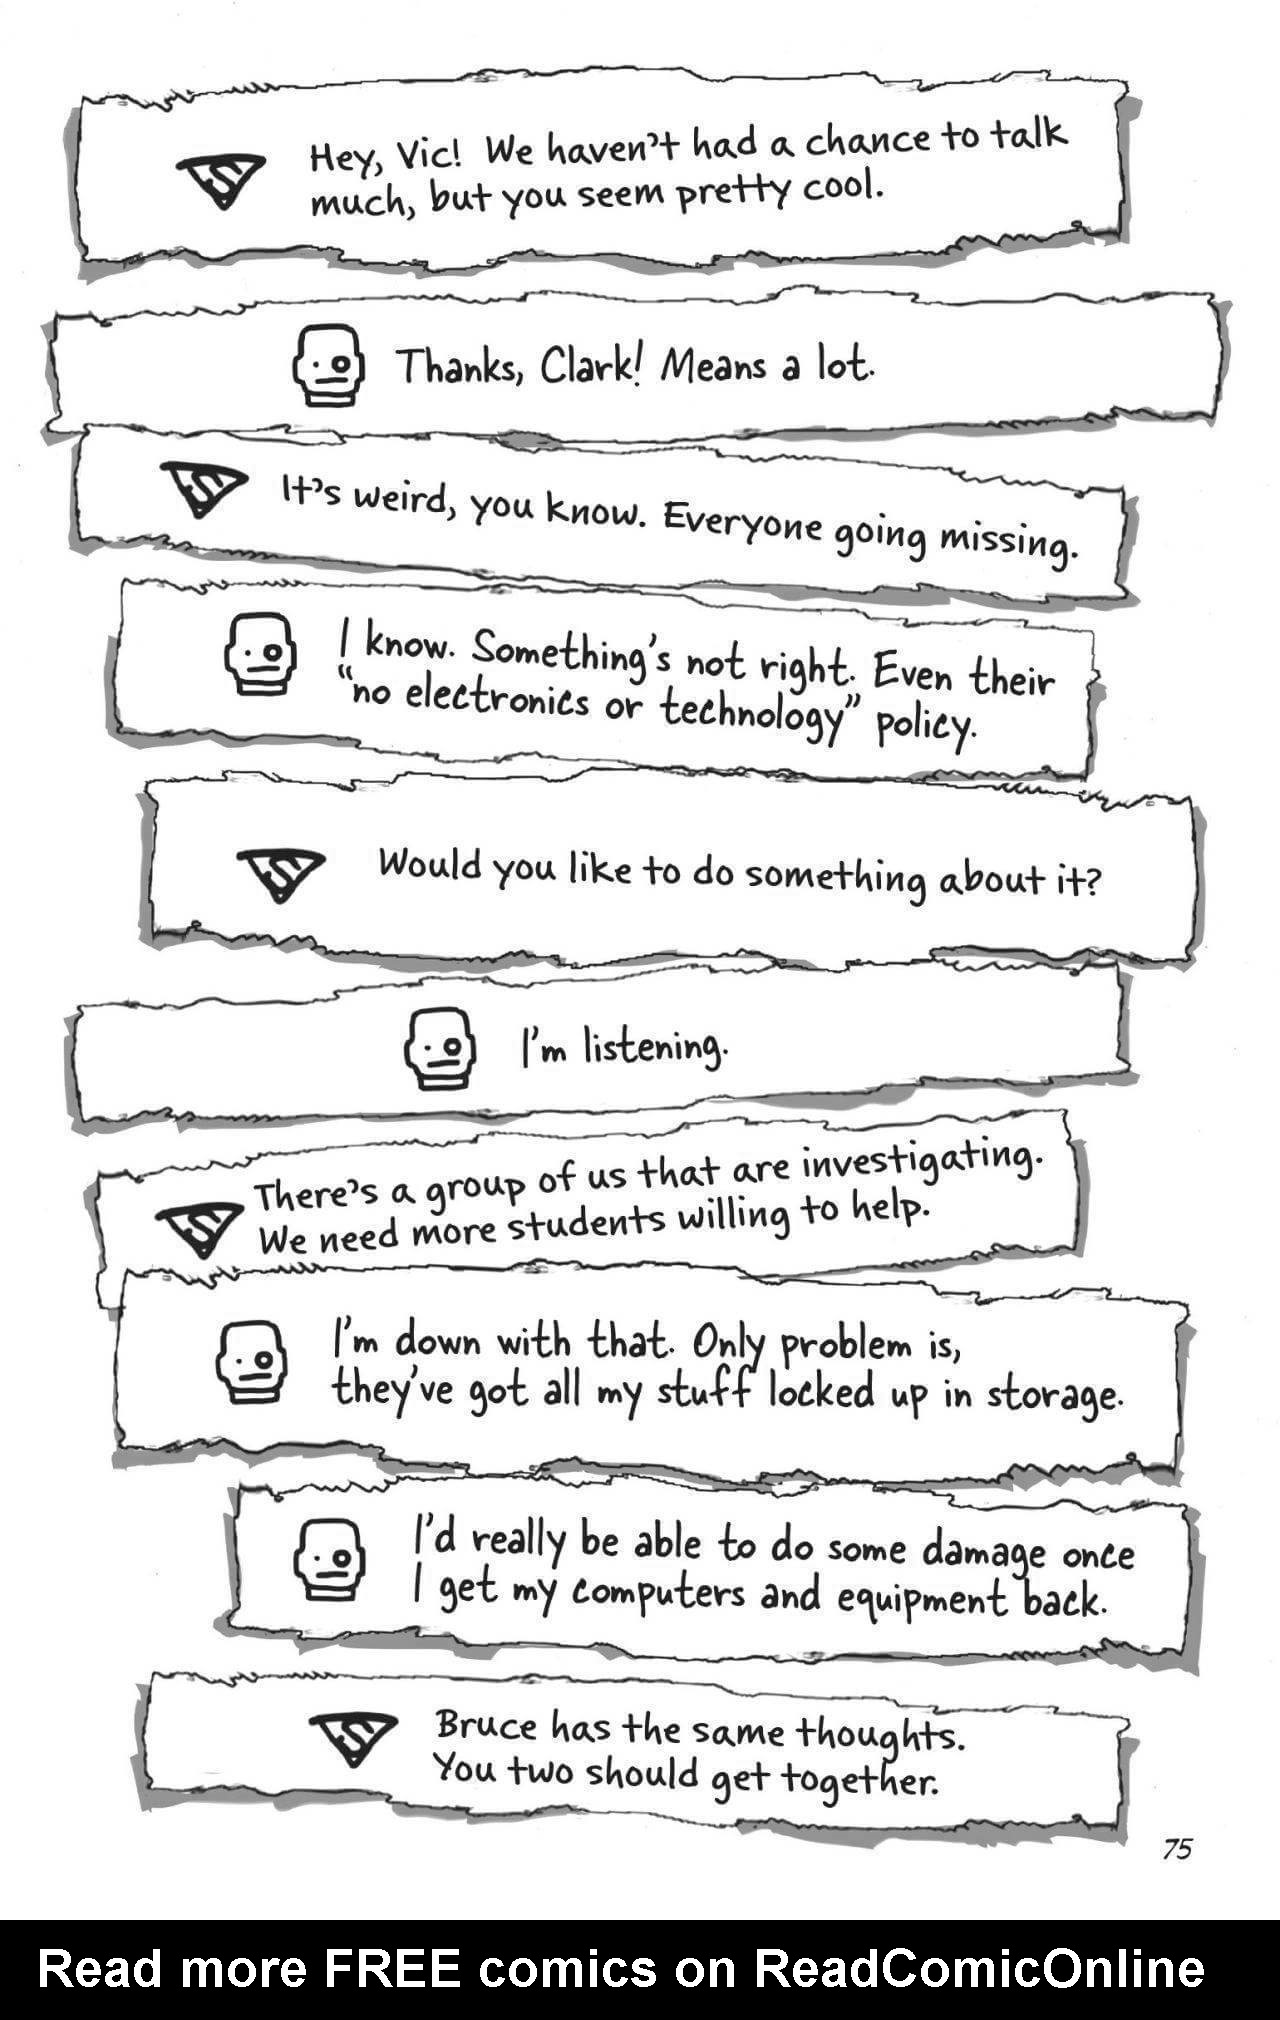 Hey, Vic! We haven't had a chance to talk
much, but you seem pretty cool.
Thanks, Clark! Means a lot.
It's weird, you know. Everyone going missing.
I know. Something's not right. Even their
"no electronics or technology" policy.
Would you like to do something about it?
I'm listening.
There's a group of us that are investigating.
We need more students willing to help.
I'm down with that. Only problem is,
they've got all my stuff locked up in storage.
I'd really be able to do some damage once
I get my computers and equipment back.
Bruce has the same thoughts.
You two should get together.
75
Read more FREE comics on ReadComicOnline